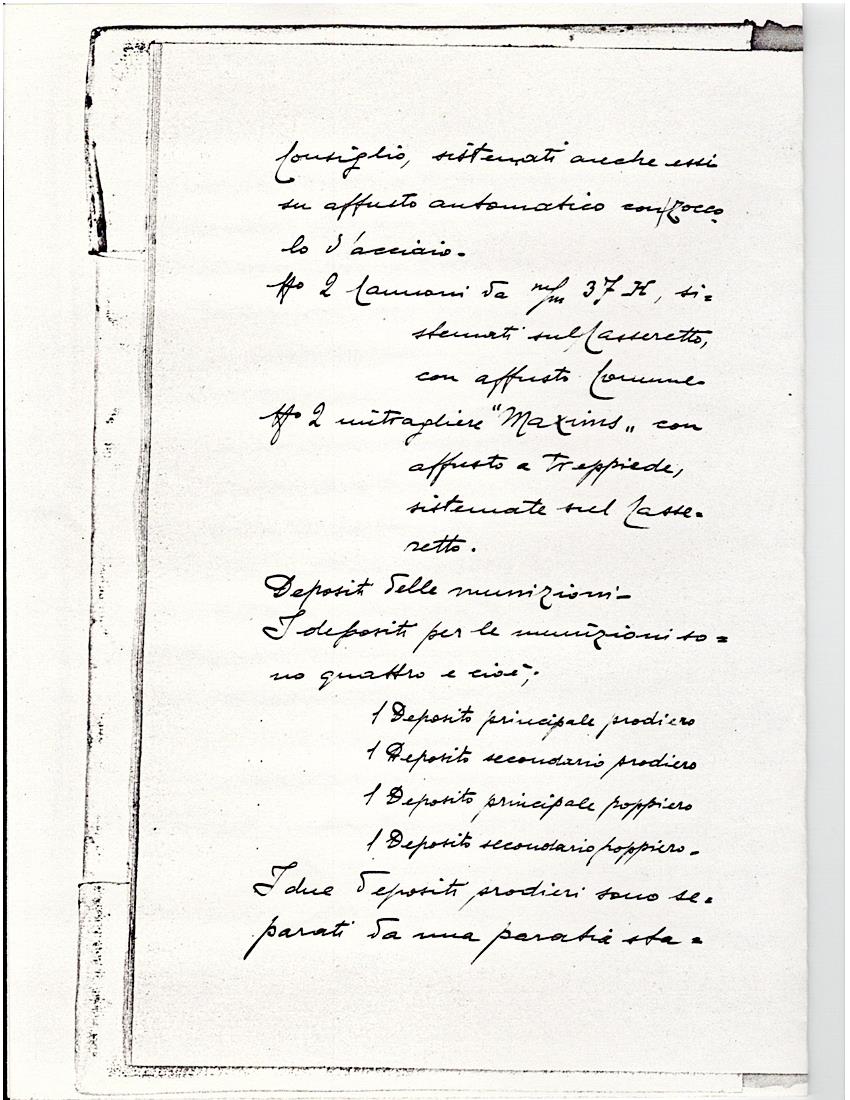 Consiglio, sistemati anche essi
su affusto automatico con zocco
lo d'acciaio.
No 2 Cannoni da m/m 37 H, si=
stemati sul Casseretto,
con affusto Comune
No 2 mitragliere "Maxims„ con
affusto a treppiede,
sistemate sul Casse=
retto.
Depositi delle munizioni-
I depositi per le munizioni so=
no quattro e cioè;
1 Deposito principale prodiero
1 Deposito secondario prodiero
1 Deposito principale poppiero
1 Deposito secondario poppiero-
I due depositi prodieri sono se=
parati da una paratia sta=